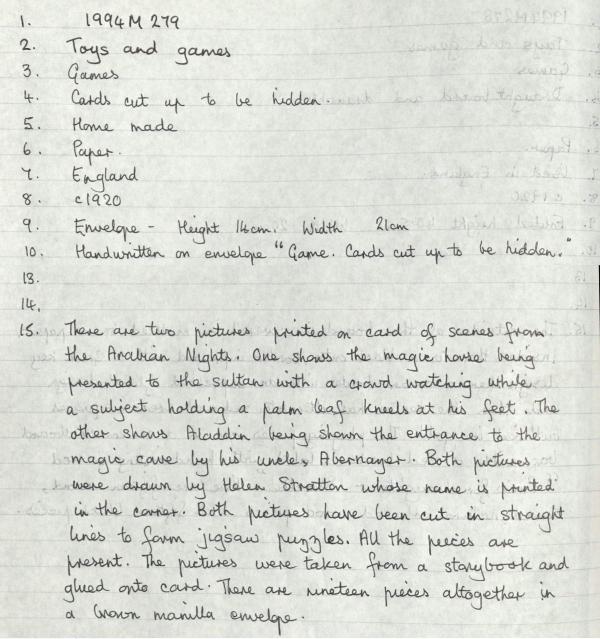 1. 1994 M 279
2. Toys and games
3. Games
4. Cards cut up to be hidden.
5. Home made
6. Paper.
7. England
8. c1920
9. Envelope - Height 14cm. Width 21cm
10. Handwritten on envelope "Game. Cards cut up to be hidden."
13.
14.
15. There are two pictures printed on card of scenes from
the Arabian Nights. One shows the magic horse being
presented to the sultan with a crowd watching while
a subject holding a palm leaf kneels at his feet. The
other shows Aladdin being shown the entrance to the
magic cave by his uncle, Abernayer. Both pictures
were drawn by Helen Stratton whose name is printed
in the corner. Both pictures have been cut in straight
lines to form jigsaw puzzles. All the pieces are
present. The pictures were taken from a storybook and
glued onto card. There are nineteen pieces altogether in
a brown manilla envelope.